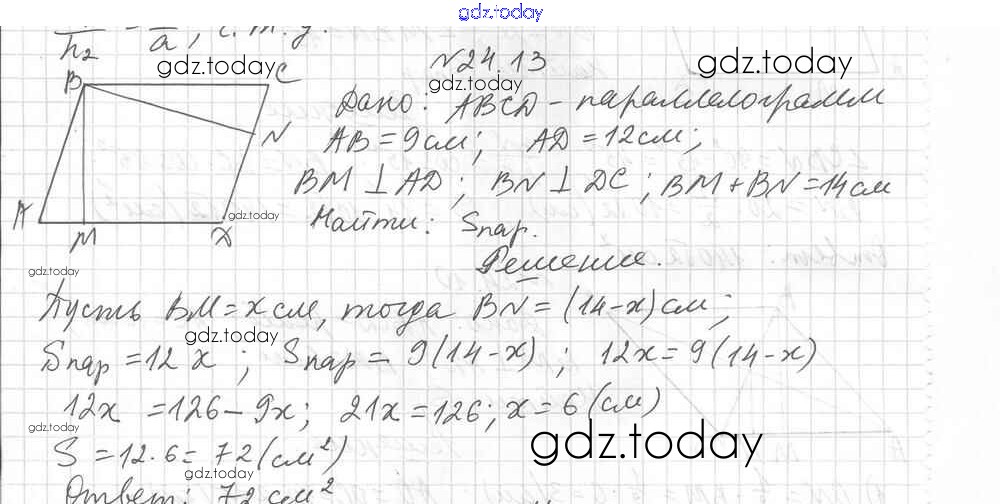 gdz.today
h₂ = a, ч.т.д.
gdz.today
№24.13
gdz.today
gdz.today
B C
Дано: ABCD - параллелограмм
N AB = 9 см; AD = 12 см;
BM ⊥ AD; BN ⊥ DC; BM + BN = 14 см
A M D
gdz.today
Найти: Sпар.
Решение.
gdz.today
Пусть BM = x см, тогда BN = (14-x) см;
gdz.today
Sпар = 12 x; Sпар = 9(14-x); 12x = 9(14-x)
12x = 126 - 9x; 21x = 126; x = 6 (см)
gdz.today
gdz.today
S = 12·6 = 72 (см²)
gdz.today
Ответ: 72 см²